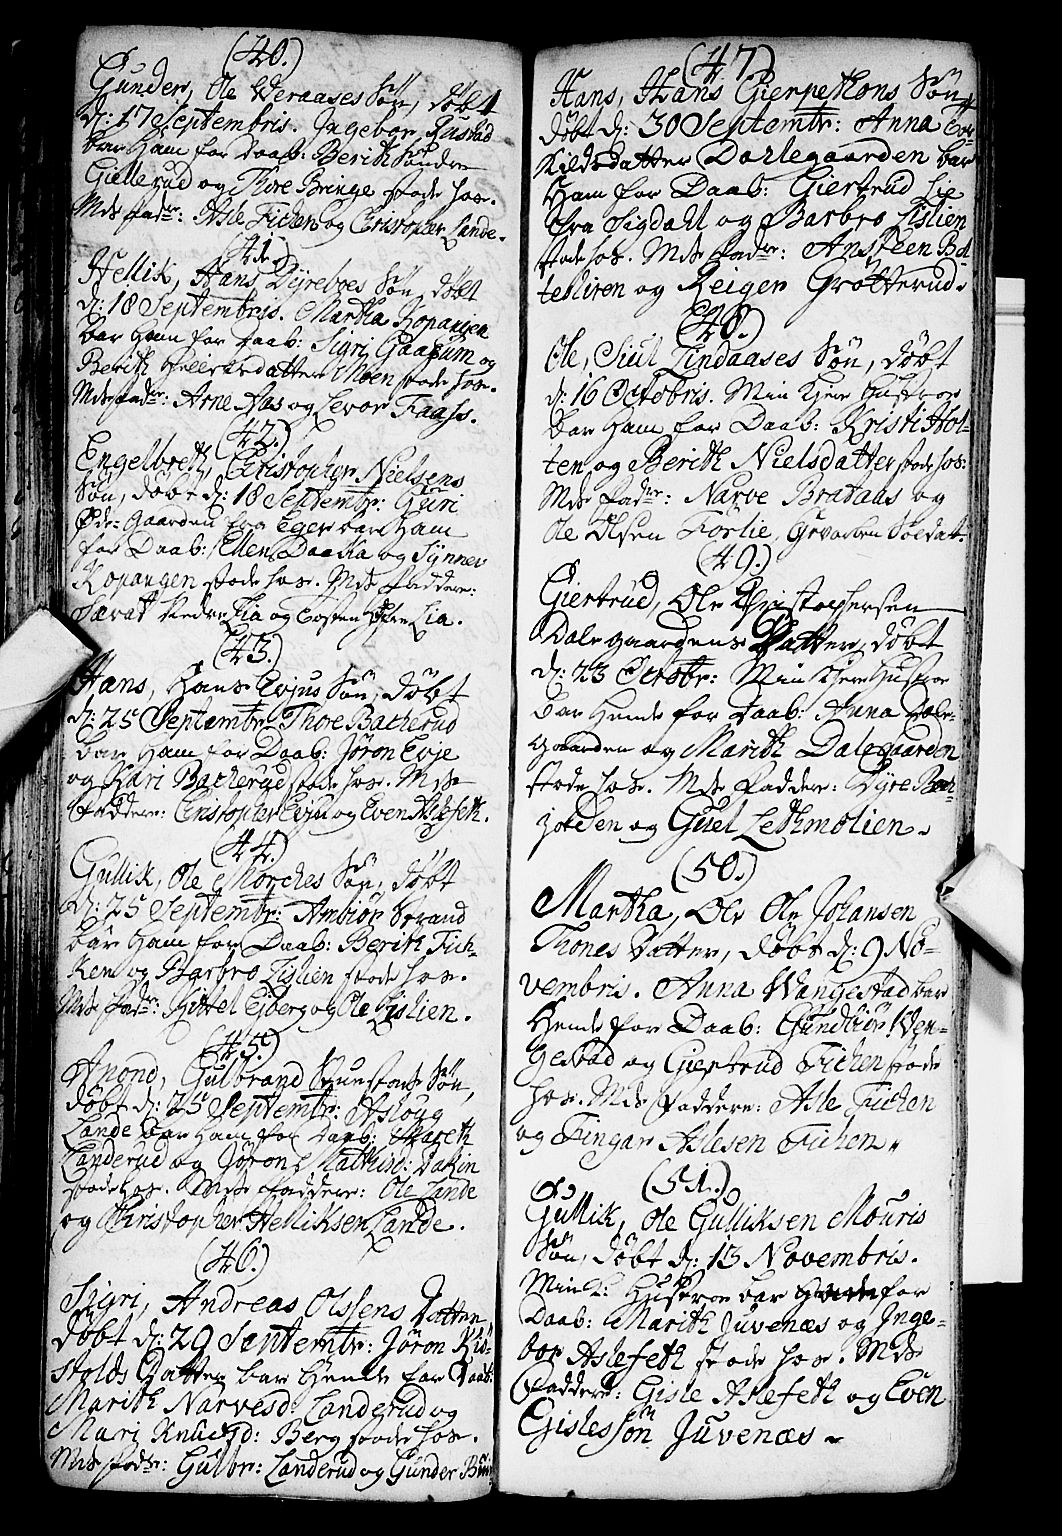 (40.)
Gunder, Ole Weraases Søn, døbt
d: 17 Septembris. Ingebor Rustad
bar Ham for Daab: Berith Sundre
Gullerud og Thore Bringe stode hos.
Mds fadr: Asle Fichen og Christopher Lande.
(41.)
Hellik, Hans Dyreboes Søn, døbt
d: 18 Septembris. Martha Kopangen
bar Ham for Daab: Sigri Gaasum og
Berith Helleiksdatter Moen stode hos.
Mds fadr: Arne Aas og Levor Faass.
(42.)
Engelbreth, Christopher Nielsens
Søn, døbt d: 18 Septembr: Guri
Øde-Gaarden fra Eger bar Ham
for Daab: Ellen Daaka og Synnev
Kopangen stode hos. Mds faddere:
Tarald Nedre Lia og Tosten Øfre Lia.
(43.)
Hans, Hans Evjus Søn, døbt
d: 25 Septembr. Thore Bacherud
bar Ham for Daab: Jøron Evje
og Kari Bacherud stode hos. Mds
Faddere: Christopher Evju og Even Aslefeth.
(44.)
Gullik, Ole Morches Søn, døbt
d: 25 Septembr: Ambiør Strand
bar Ham for Daab: Berith Fich-
ken og Barbro Lislien stode hos.
Mds fadr: Kittel Ejberg og Ole Lislien.
(45.)
Anond, Gulbrand Skuustads Søn,
døbt d: 25 Septembr: Asloug
Lande bar Ham for Daab: Mareth
Landerud og Jøron Mathisd: Dakin
stode hos. Mds faddere: Ole Lande
og Christopher Helliksen Lande.
(46.)
Sigri, Andreas Olssens Datter
døbt d: 29 Septembr: Jøron Kid-
stolds Datter bar Hende for Daab:
Marith Narvesd: Landerud og
Mari Knudsd: Berg stode hos.
Mds fadr: Gulbr: Landerud og Gunder
(47.)
Hans, Hans Gierpethons Søn
døbt d: 30 Septembr: Anna Tor-
kildsdatter Dalegaarden bar
Ham for Daab: Giertrud Lie
fra Sigdall og Barbro Lislien
stode hos. Mds fadr: Ansteen Bol-
tehliren og Reiger Grøtterud.
(48.)
Ole, Siul Lindaases Søn, døbt
d: 16 Octobris. Min Kiere Hustroe
bar Ham for Daab: Kristi Hol-
ten og Berith Nielsdatter stode hos:
Mds fadr: Narve Brataas og
Ole Olsen Forlie, Gevorben Soldat.
(49.)
Giertrud, Ole Christophersen
Dalegaardens Datter, døbt
d: 23 Octobr: Min Kiere Hustroe
bar Hende for Daab: Anna Dale-
gaarden og Marith Dalegaarden
stode hos. Mds faddere: Kyre Bær-
jorden og Gisel Lethmolien.
(50.)
Martha, Ole Ole Johansen
Thones Datter, døbt d: 9 No-
vembris. Anna Wangestad bar
Hende for Daab: Gundbiør Wen-
gestad og Giertrud Fichen stode
hos. Mds Faddere: Asle Fichen
og Fingar Aslesen Fichen.
(51.)
Gullik, Ole Gulliksen Mouris
Søn, døbt d: 13 Novembris.
Min K: Hustroe bar Hende for
Daab: Marith Juvenæs og Inge-
bor Aslefeth stode hos. Mds
Faddere: Gisle Aslefeth og Even
Gislessøn Juvenæs.